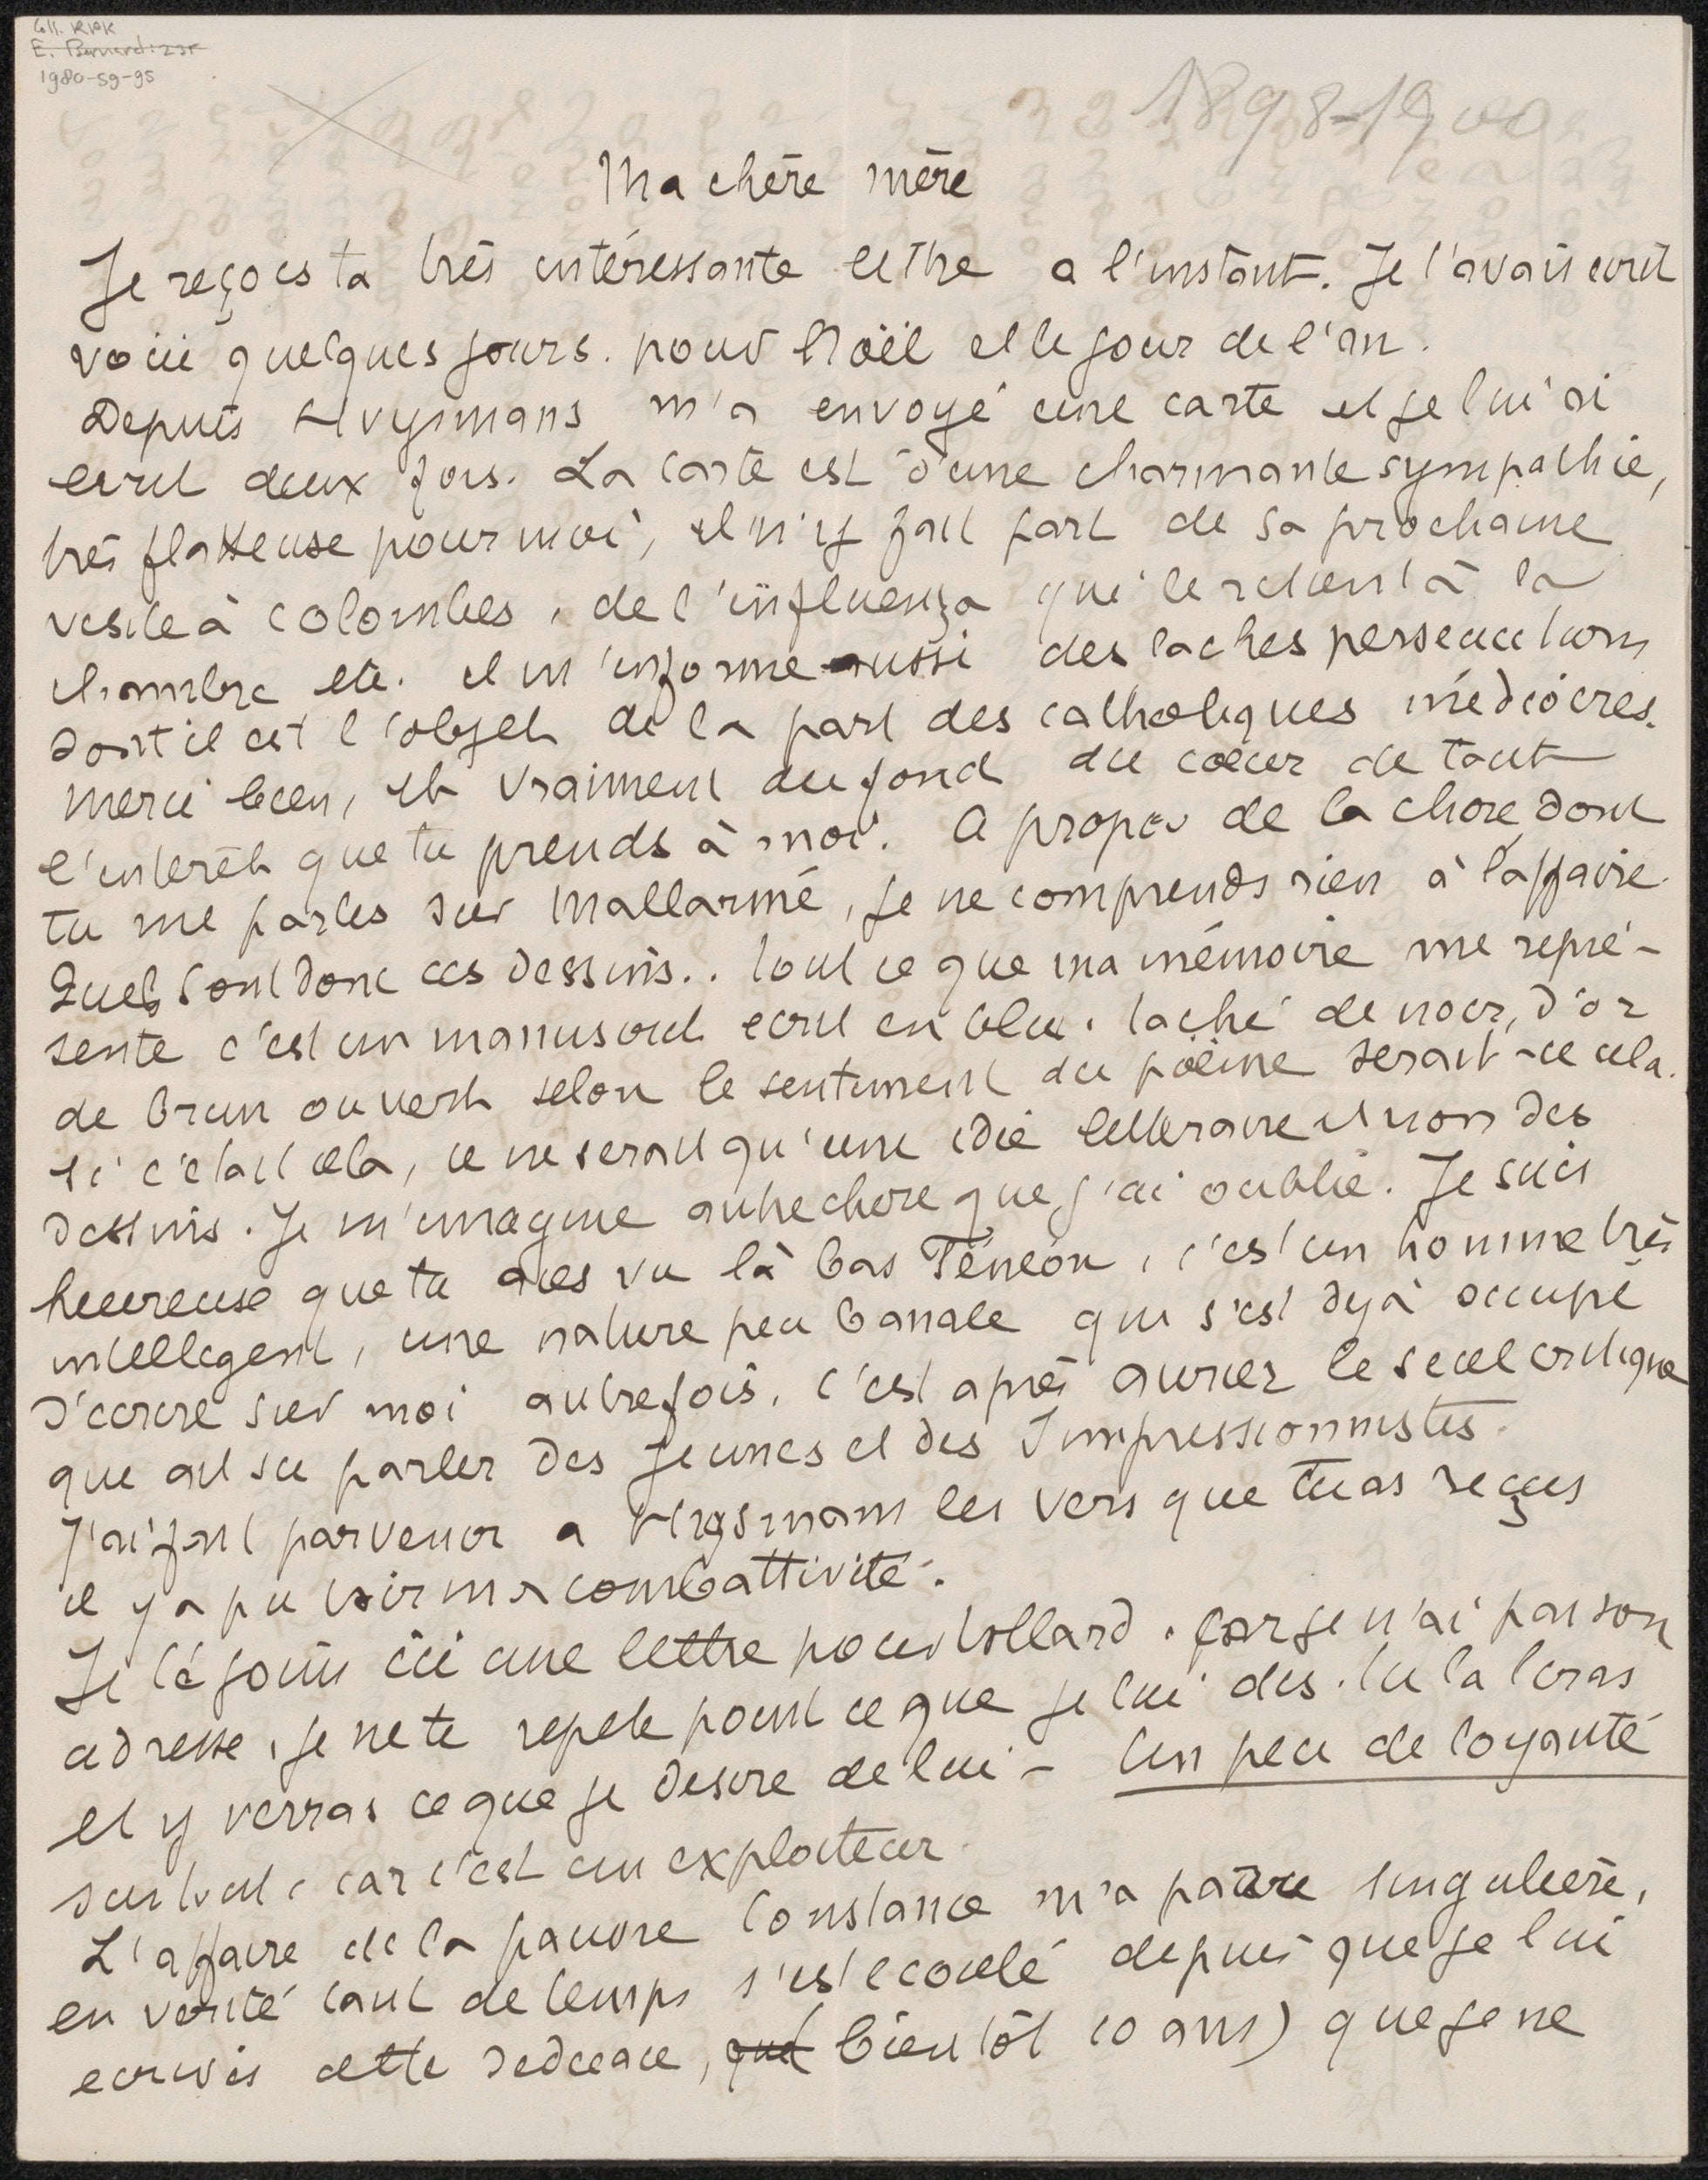 Coll. RPK
E. Bernard: 235
1980-59-95
1898-1900
Ma chère mère
Je reçois ta très intéressante lettre a l'instant. Je t'avais ecrit
voici quelques jours. pour Noël et le jour de l'an.
Depuis Huysmans m'a envoyé une carte et je lui ai
ecrit deux fois. La carte est d'une charmante sympathie,
très flatteuse pour moi, il m'y fait part de sa prochaine
visite à Colombes, de l'influenza qui le retient à la
chambre etc. il m'informe aussi des laches persecutions
dont il est l'objet de la part des catholiques médiocres.
Merci bien, et vraiment du fond du coeur de tout
l'interêt que tu prends à moi. A propos de la chose dont
tu me parles sur Mallarmé, je ne comprends rien à l'affaire.
Quels sont donc ces dessins.. tout ce que ma mémoire me repré-
sente c'est un manuscrit ecrit en bleu. taché de noir, d'or
de brun ou vert selon le sentiment du poëme serait-ce cela.
si c'était cela, ce ne serait qu'une idée litteraire et non des
dessins. Je m'imagine autre chose que j'ai oublié. Je suis
heureuse que tu aies vu là bas Fénéon, c'est un homme très
intelligent, une nature peu banale qui s'est déjà occupé
d'ecrire sur moi autrefois. c'est après Aurier le seul critique
que ait su parler des jeunes et des Impressionnistes.
J'ai fait parvenir a Huysmans les vers que tu as reçus
il y a pu voir ma combattivité.
Je te joins ici une lettre pour Vollard. car je n'ai pas son
adresse, je ne te repete point ce que je lui dis. tu la liras
et y verras ce que je desire de lui - Un peu de loyauté
surtout, car c'est un exploiteur.
L'affaire de la pauvre Constance m'a parue singulière,
en verité tant de temps s'est ecoulé depuis que je lui
ecrivis cette dedicace, que bientôt 10 ans) que je ne